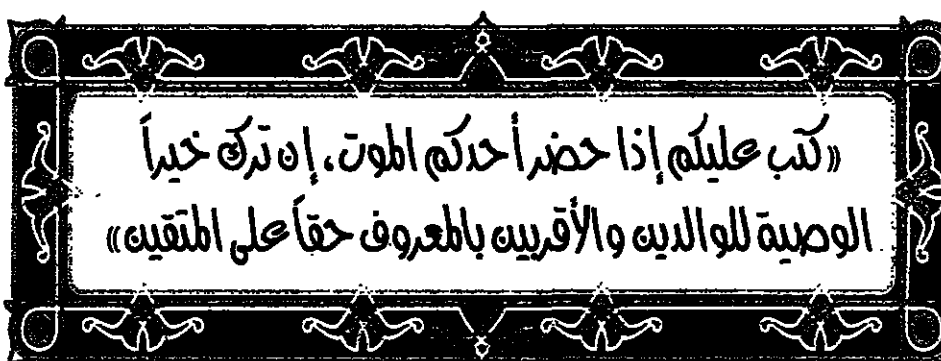 «كتب عليكم إذا حضر أحدكم الموت، إن ترك خيراً
الوصية للوالدين والأقربين بالمعروف حقاً على المتقين»